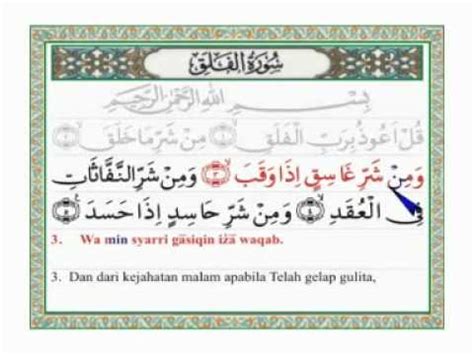 سُورَةُ الفَلَقِ
بِسْمِ اللهِ الرَّحْمٰنِ الرَّحِيمِ
قُلْ أَعُوذُ بِرَبِّ الْفَلَقِ ۝١ مِنْ شَرِّ مَا خَلَقَ ۝٢
وَمِنْ شَرِّ غَاسِقٍ إِذَا وَقَبَ ۝٣ وَمِنْ شَرِّ النَّفَّاثَاتِ
فِي الْعُقَدِ ۝٤ وَمِنْ شَرِّ حَاسِدٍ إِذَا حَسَدَ ۝٥
3. Wa min syarri gāsiqin iżā waqab.
3. Dan dari kejahatan malam apabila Telah gelap gulita,